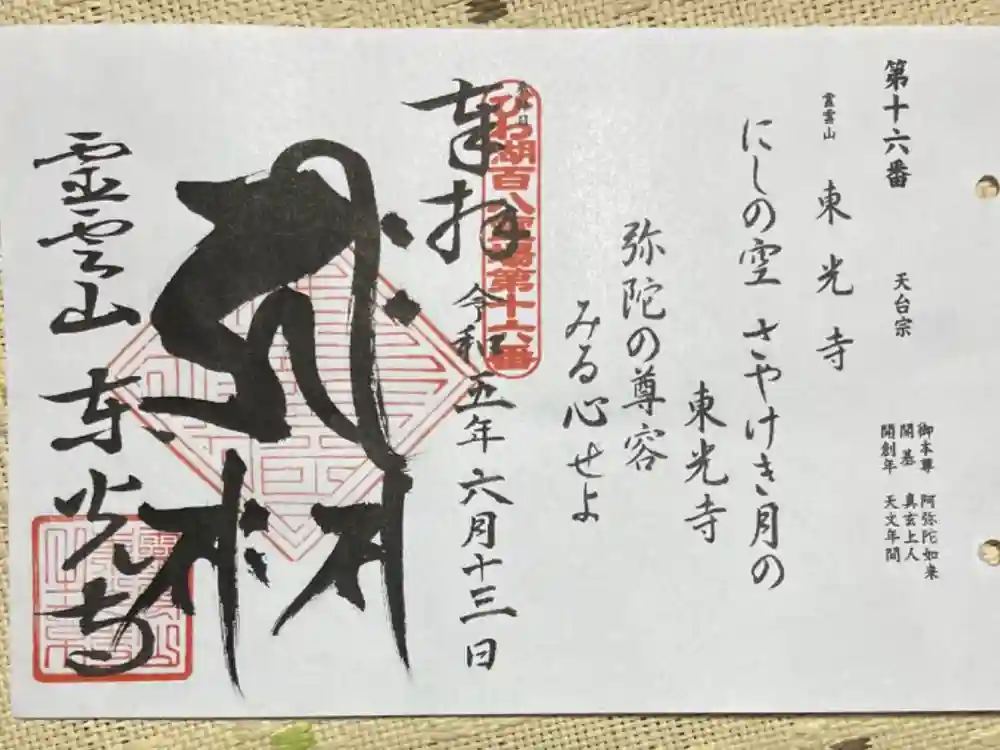 第十六番 天台宗
御本尊 阿弥陀如来
開基 真玄上人
開創年 天文年間
霊雲山 東光寺
にしの空 さやけき月の 東光寺
弥陀の尊容
みる心せよ
びわ湖百八霊場第十六番
奉拝 令和五年六月十三日
霊雲山 東光寺